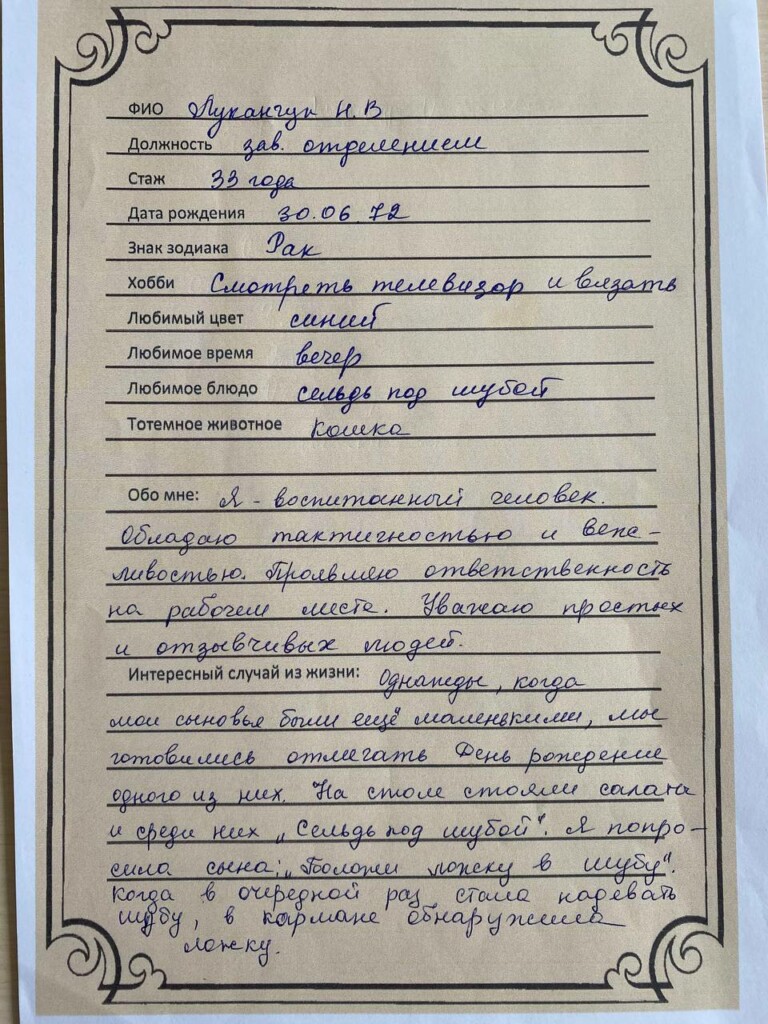 ФИО Лукангук Н. В
Должность зав. отделением
Стаж 33 года
Дата рождения 30.06.72
Знак зодиака Рак
Хобби Смотреть телевизор и вязать
Любимый цвет синий
Любимое время вечер
Любимое блюдо сельдь под шубой
Тотемное животное кошка
Обо мне: Я - воспитанный человек.
Обладаю тактичностью и веж-
ливостью. Проявляю ответственность
на рабочем месте. Уважаю простых
и отзывчивых людей.
Интересный случай из жизни: Однажды, когда
мои сыновья были ещё маленькими, мы
готовились отмечать День рождение
одного из них. На столе стояли салаты
и среди них „Сельдь под шубой". Я попро-
сила сына: „Положи ложку в шубу".
Когда в очередной раз стала надевать
шубу, в кармане обнаружила
ложку.